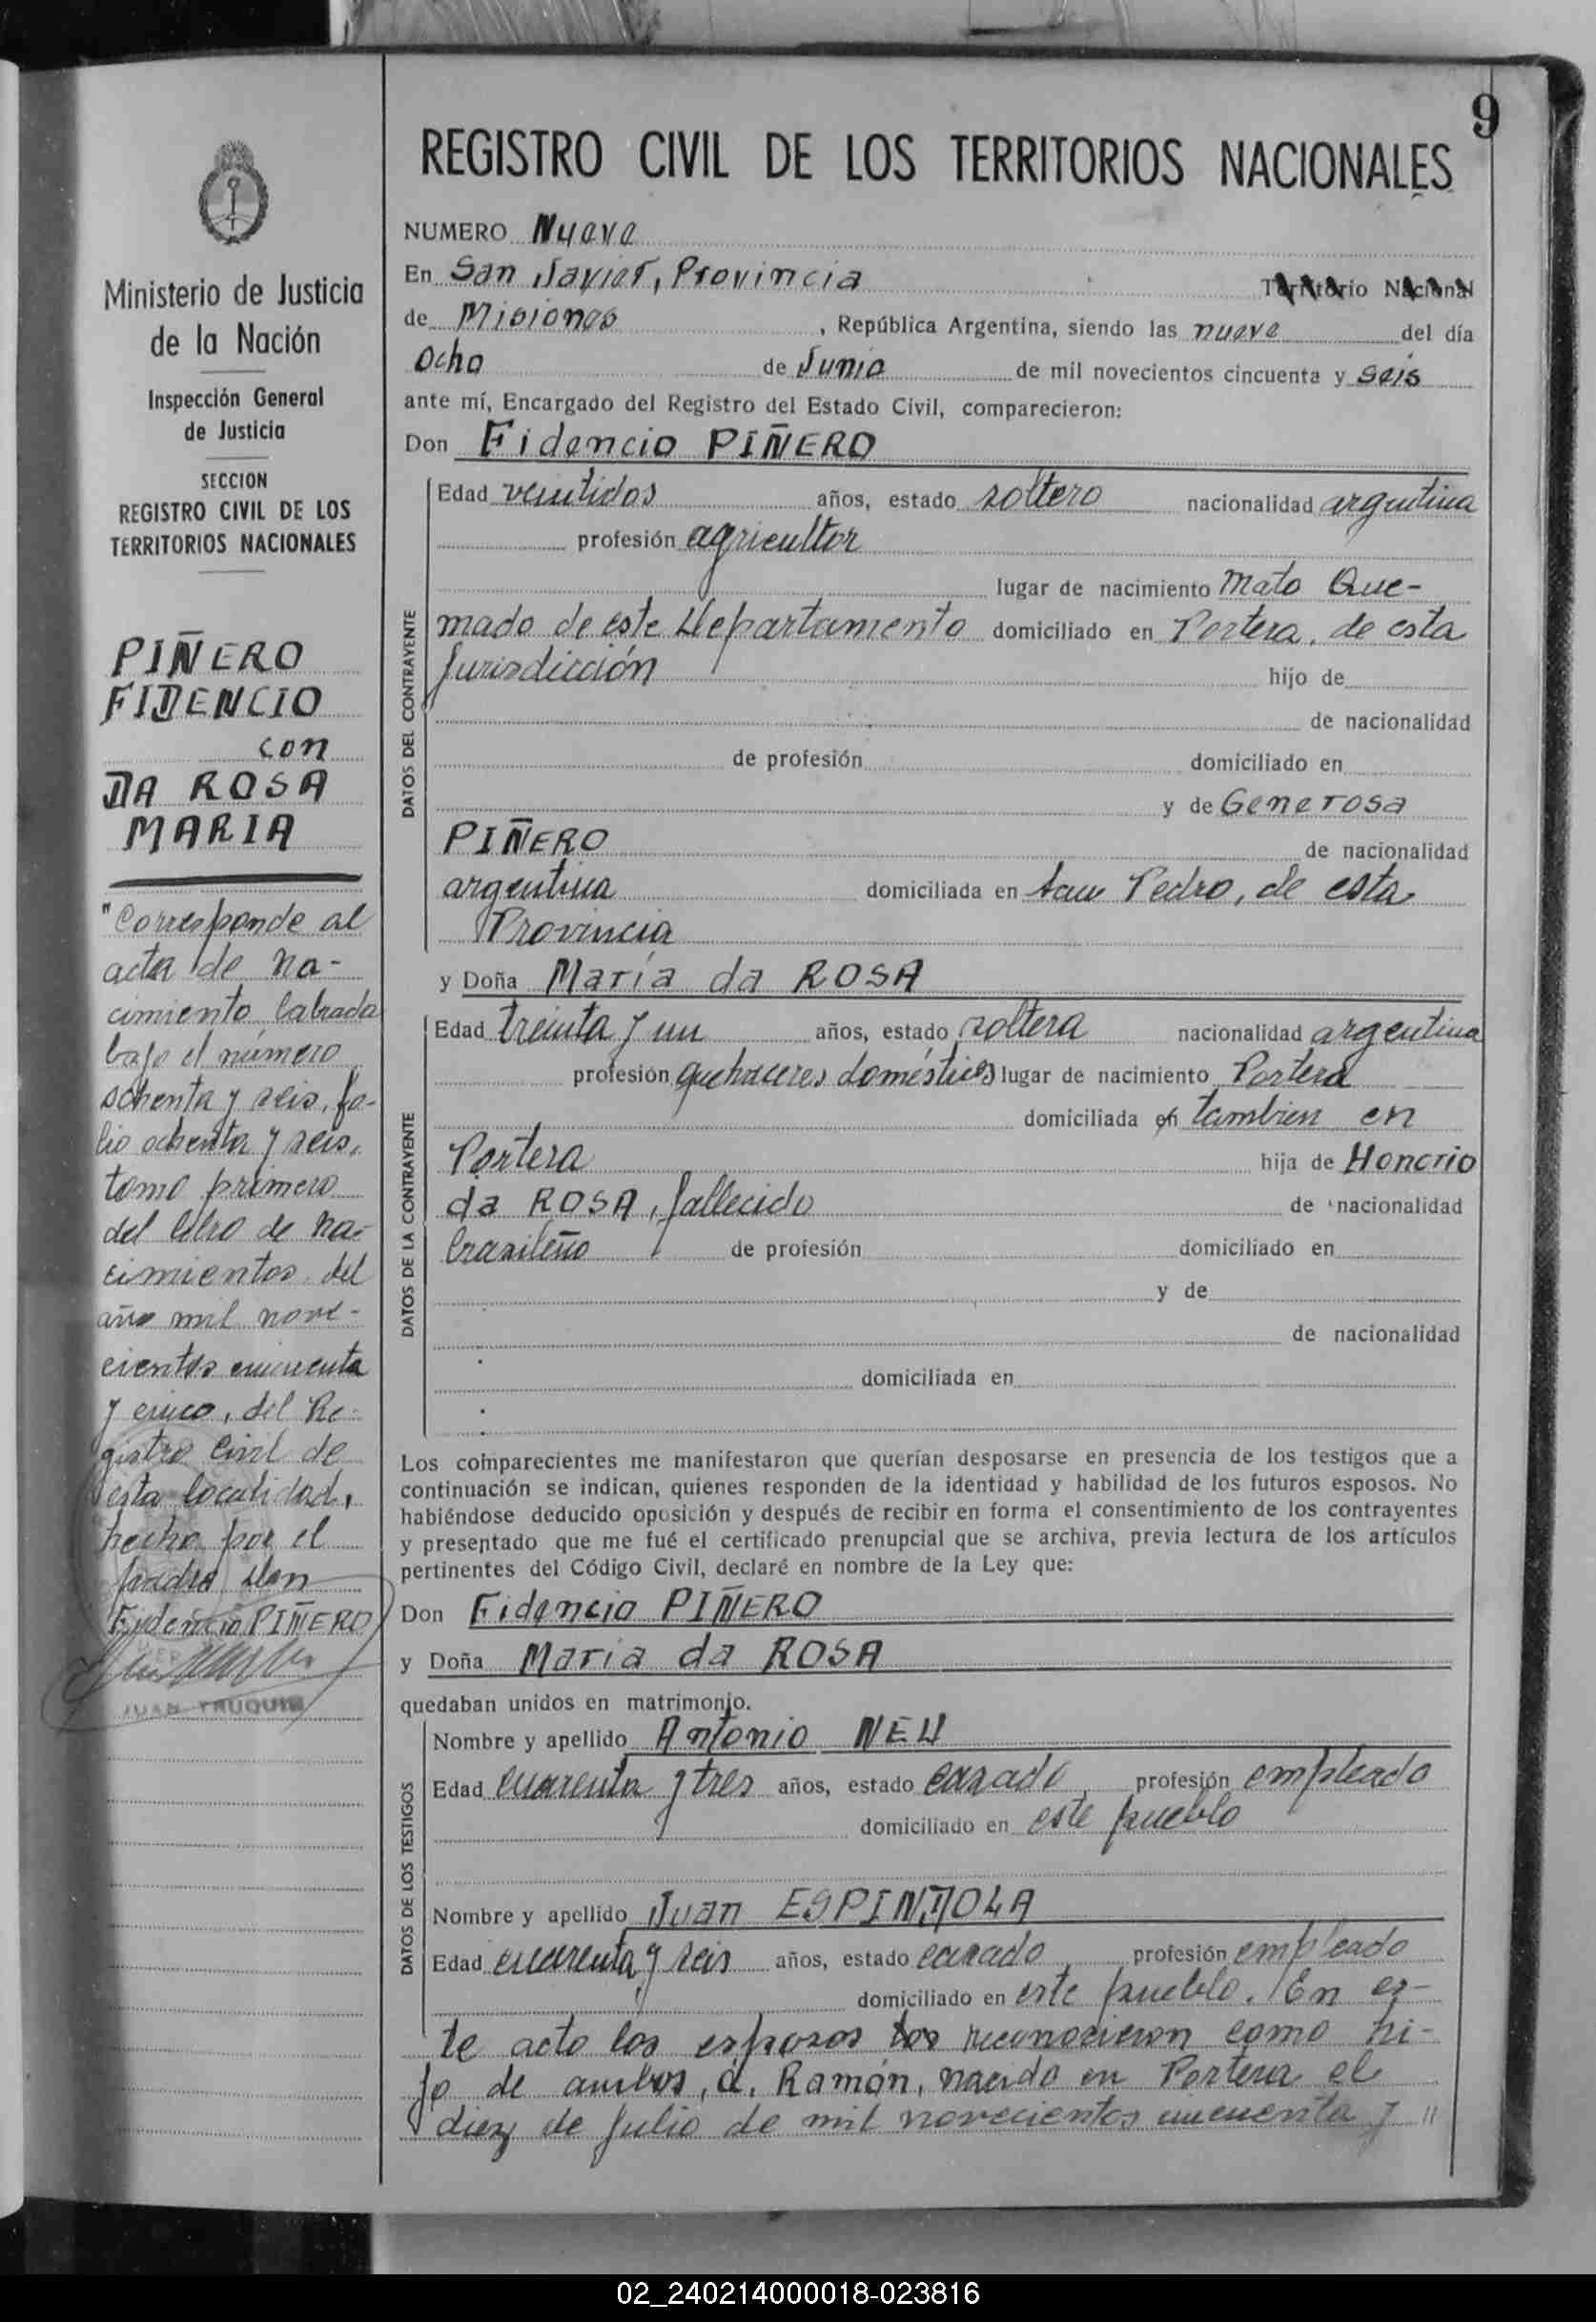 9
REGISTRO CIVIL DE LOS TERRITORIOS NACIONALES
NUMERO Nueve
En San Javier, Provincia Territorio Nacional
de Misiones, República Argentina, siendo las nueve del día
Ocho de Junio de mil novecientos cincuenta y seis
ante mí, Encargado del Registro del Estado Civil, comparecieron:
Don Fidencio PIÑERO
DATOS DEL CONTRAYENTE
Edad veintidos años, estado soltero nacionalidad argentina
profesión agricultor
lugar de nacimiento Mato Que-
mado de este Departamento domiciliado en Portera, de esta
Jurisdicción hijo de
de nacionalidad
de profesión domiciliado en
y de Generosa
PIÑERO de nacionalidad
argentina domiciliada en San Pedro, de esta
Provincia
y Doña María da ROSA
DATOS DE LA CONTRAYENTE
Edad treinta y un años, estado soltera nacionalidad argentina
profesión quehaceres domésticos lugar de nacimiento Portera
domiciliada en tambien en
Portera hija de Honorio
da ROSA, fallecido de nacionalidad
brasileño de profesión domiciliado en
y de
de nacionalidad
domiciliada en
Los comparecientes me manifestaron que querían desposarse en presencia de los testigos que a
continuación se indican, quienes responden de la identidad y habilidad de los futuros esposos. No
habiéndose deducido oposición y después de recibir en forma el consentimiento de los contrayentes
y presentado que me fué el certificado prenupcial que se archiva, previa lectura de los artículos
pertinentes del Código Civil, declaré en nombre de la Ley que:
Don Fidencio PIÑERO
y Doña Maria da ROSA
quedaban unidos en matrimonio.
DATOS DE LOS TESTIGOS
Nombre y apellido Antonio NEU
Edad cuarenta y tres años, estado casado profesión empleado
domiciliado en este pueblo
Nombre y apellido Juan ESPINDOLA
Edad cuarenta y seis años, estado casado profesión empleado
domiciliado en este pueblo. En es-
te acto los esposos reconocieron como hi-
jo de ambos, a, Ramón, nacido en Portera el
diez de julio de mil novecientos cincuenta y "
Ministerio de Justicia
de la Nación
Inspección General
de Justicia
SECCION
REGISTRO CIVIL DE LOS
TERRITORIOS NACIONALES
PIÑERO
FIDENCIO
con
DA ROSA
MARIA
"Corresponde al
acta de na-
cimiento labrada
bajo el número
ochenta y seis, fo-
lio ochenta y seis,
tomo primero
del libro de na-
cimientos del
año mil nove-
cientos cincuenta
y cinco, del Re-
gistro Civil de
esta localidad,
hecho por el
padre don
Fidencio PIÑERO
JUAN TRUQUIN
02_240214000018-023816